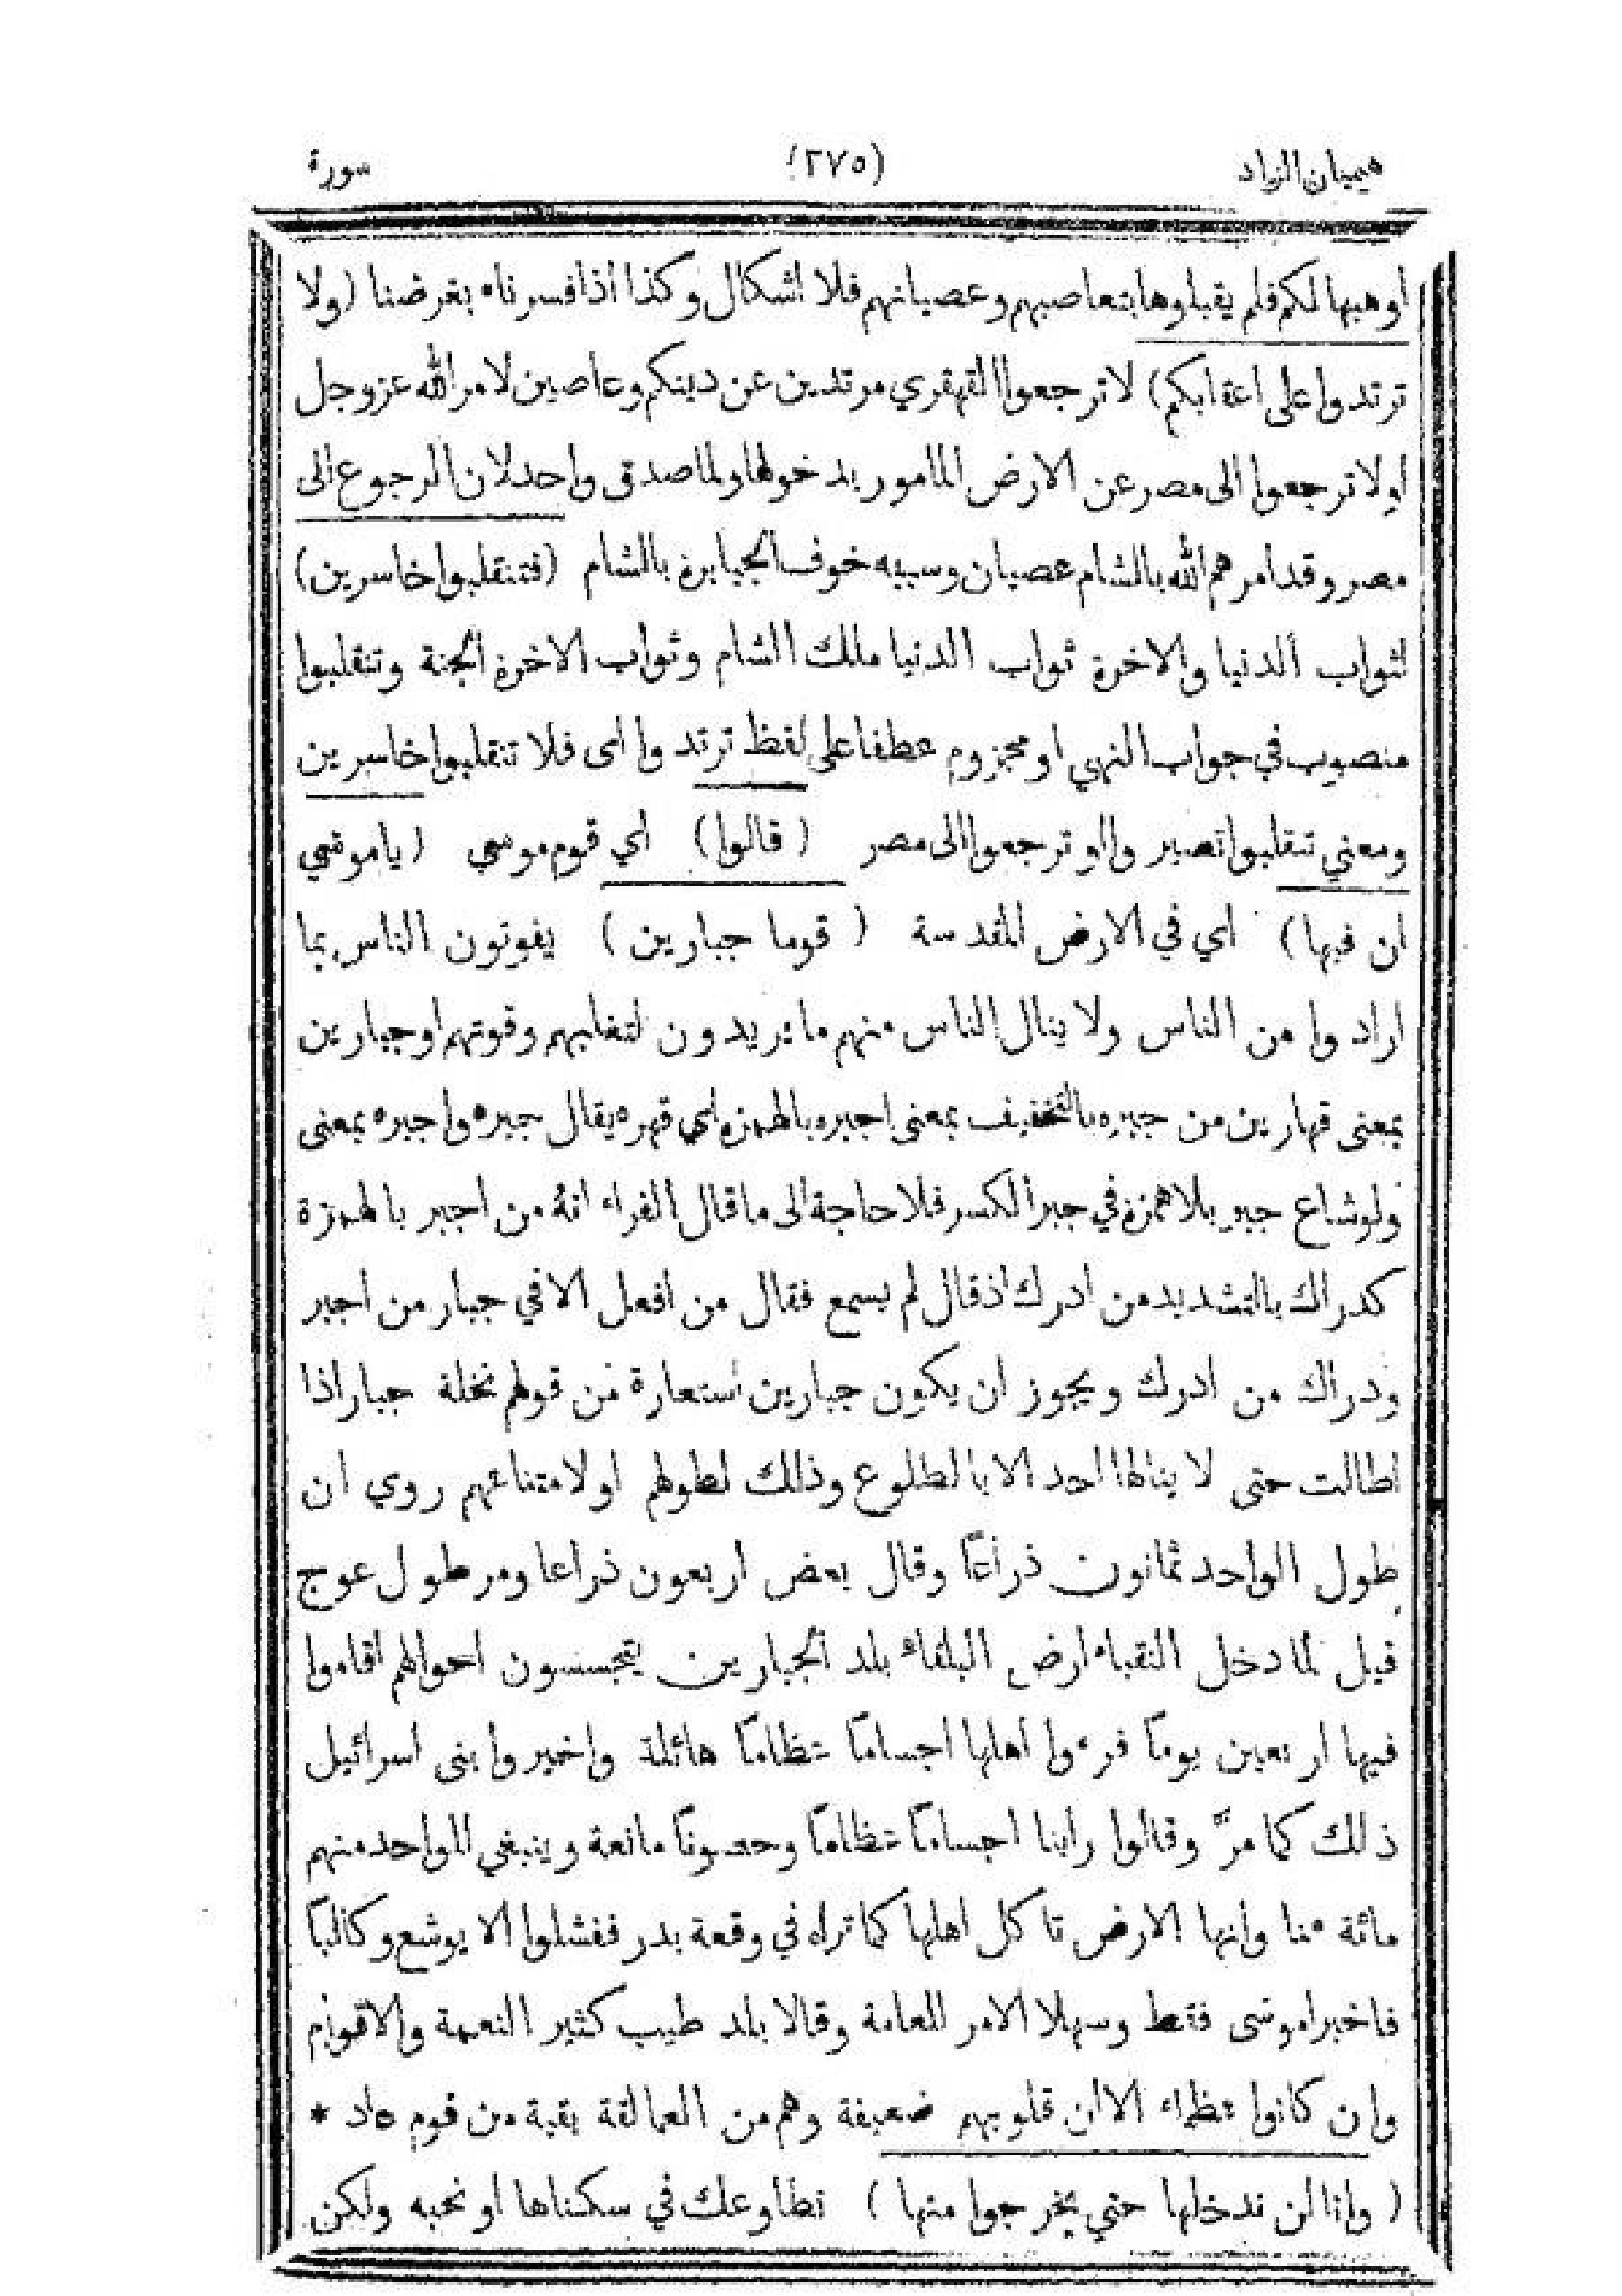 هيميان الزاد (٢٧٥) سورة
او هبها لكم فلم يقبلوها بتعاصيهم وعصيانهم فلا اشكال وكذا اذا فسرناه بفرضنا (ولا
ترتدوا على اعقابكم) لا ترجعوا القهقري مرتدين عن دينكم وعاصين لامر الله عز وجل
او لا ترجعوا الى مصر عن الارض المامور بدخولها ولماصدق واحد لان الرجوع الى
مصر وقد امرهم الله بالشام عصيان وسببه خوف الجبابرة بالشام (فتنقلبوا خاسرين)
لثواب الدنيا والاخرة ثواب الدنيا ملك الشام وثواب الاخرة الجنة وتنقلبوا
منصوب في جواب النهي او مجزوم عطفا على لفظ ترتدوا اى فلا تنقلبوا خاسرين
ومعني تنقلبوا تصير والو ترجعوا الى مصر (قالوا) اي قوم موسي (ياموسي
ان فيها) اي في الارض المقدسة (قوما جبارين) يفوتون الناس بما
ارادوا من الناس ولا ينال الناس منهم ما يريدون لتغلبهم وقوتهم او جبارين
بمعنى قهارين من جبره بالتخفيف بمعنى اجبره بالهمزة اي قهره يقال جبره واجبره بمعنى
ولو شاع جبر بلا همزة في جبر الكسر فلا حاجة الى ما قال الفراء انه من اجبر بالهمزة
كدراك بالتشديد من ادرك اذ قال لم يسمع فقال من افعل الا في جبار من اجبر
ودراك من ادرك ويجوز ان يكون جبارين استعارة من قولهم نخلة جبار اذا
اطالت حتى لا ينالها احد الا بالطلوع وذلك لطولهم او لامتناعهم روي ان
طول الواحد ثمانون ذراعًا وقال بعض اربعون ذراعا ومر طول عوج
قيل لما دخل النقباء ارض البلقاء بلد الجبارين يتجسسون احوالهم اقاموا
فيها اربعين يومًا فرءوا اهلها اجسامًا عظامًا هائلة واخبروا بنى اسرائيل
ذلك كما مرّ وقالوا راينا اجسامًا عظامًا وحصونًا مانعة وينبغي للواحد منهم
مائة منا وانها الارض تاكل اهلها كما تراه في وقعة بدر ففشلوا الا يوشع وكالبًا
فاخبرا موسى فقط وسهلا الامر للعامة وقالا بلد طيب كثير النعمة والاقوام
وان كانوا عظماء الا ان قلوبهم ضعيفة وهم من العمالقة بقية من قوم عاد *
(وانا لن ندخلها حتي يخرجوا منها) نطاوعك في سكناها او نحبه ولكن